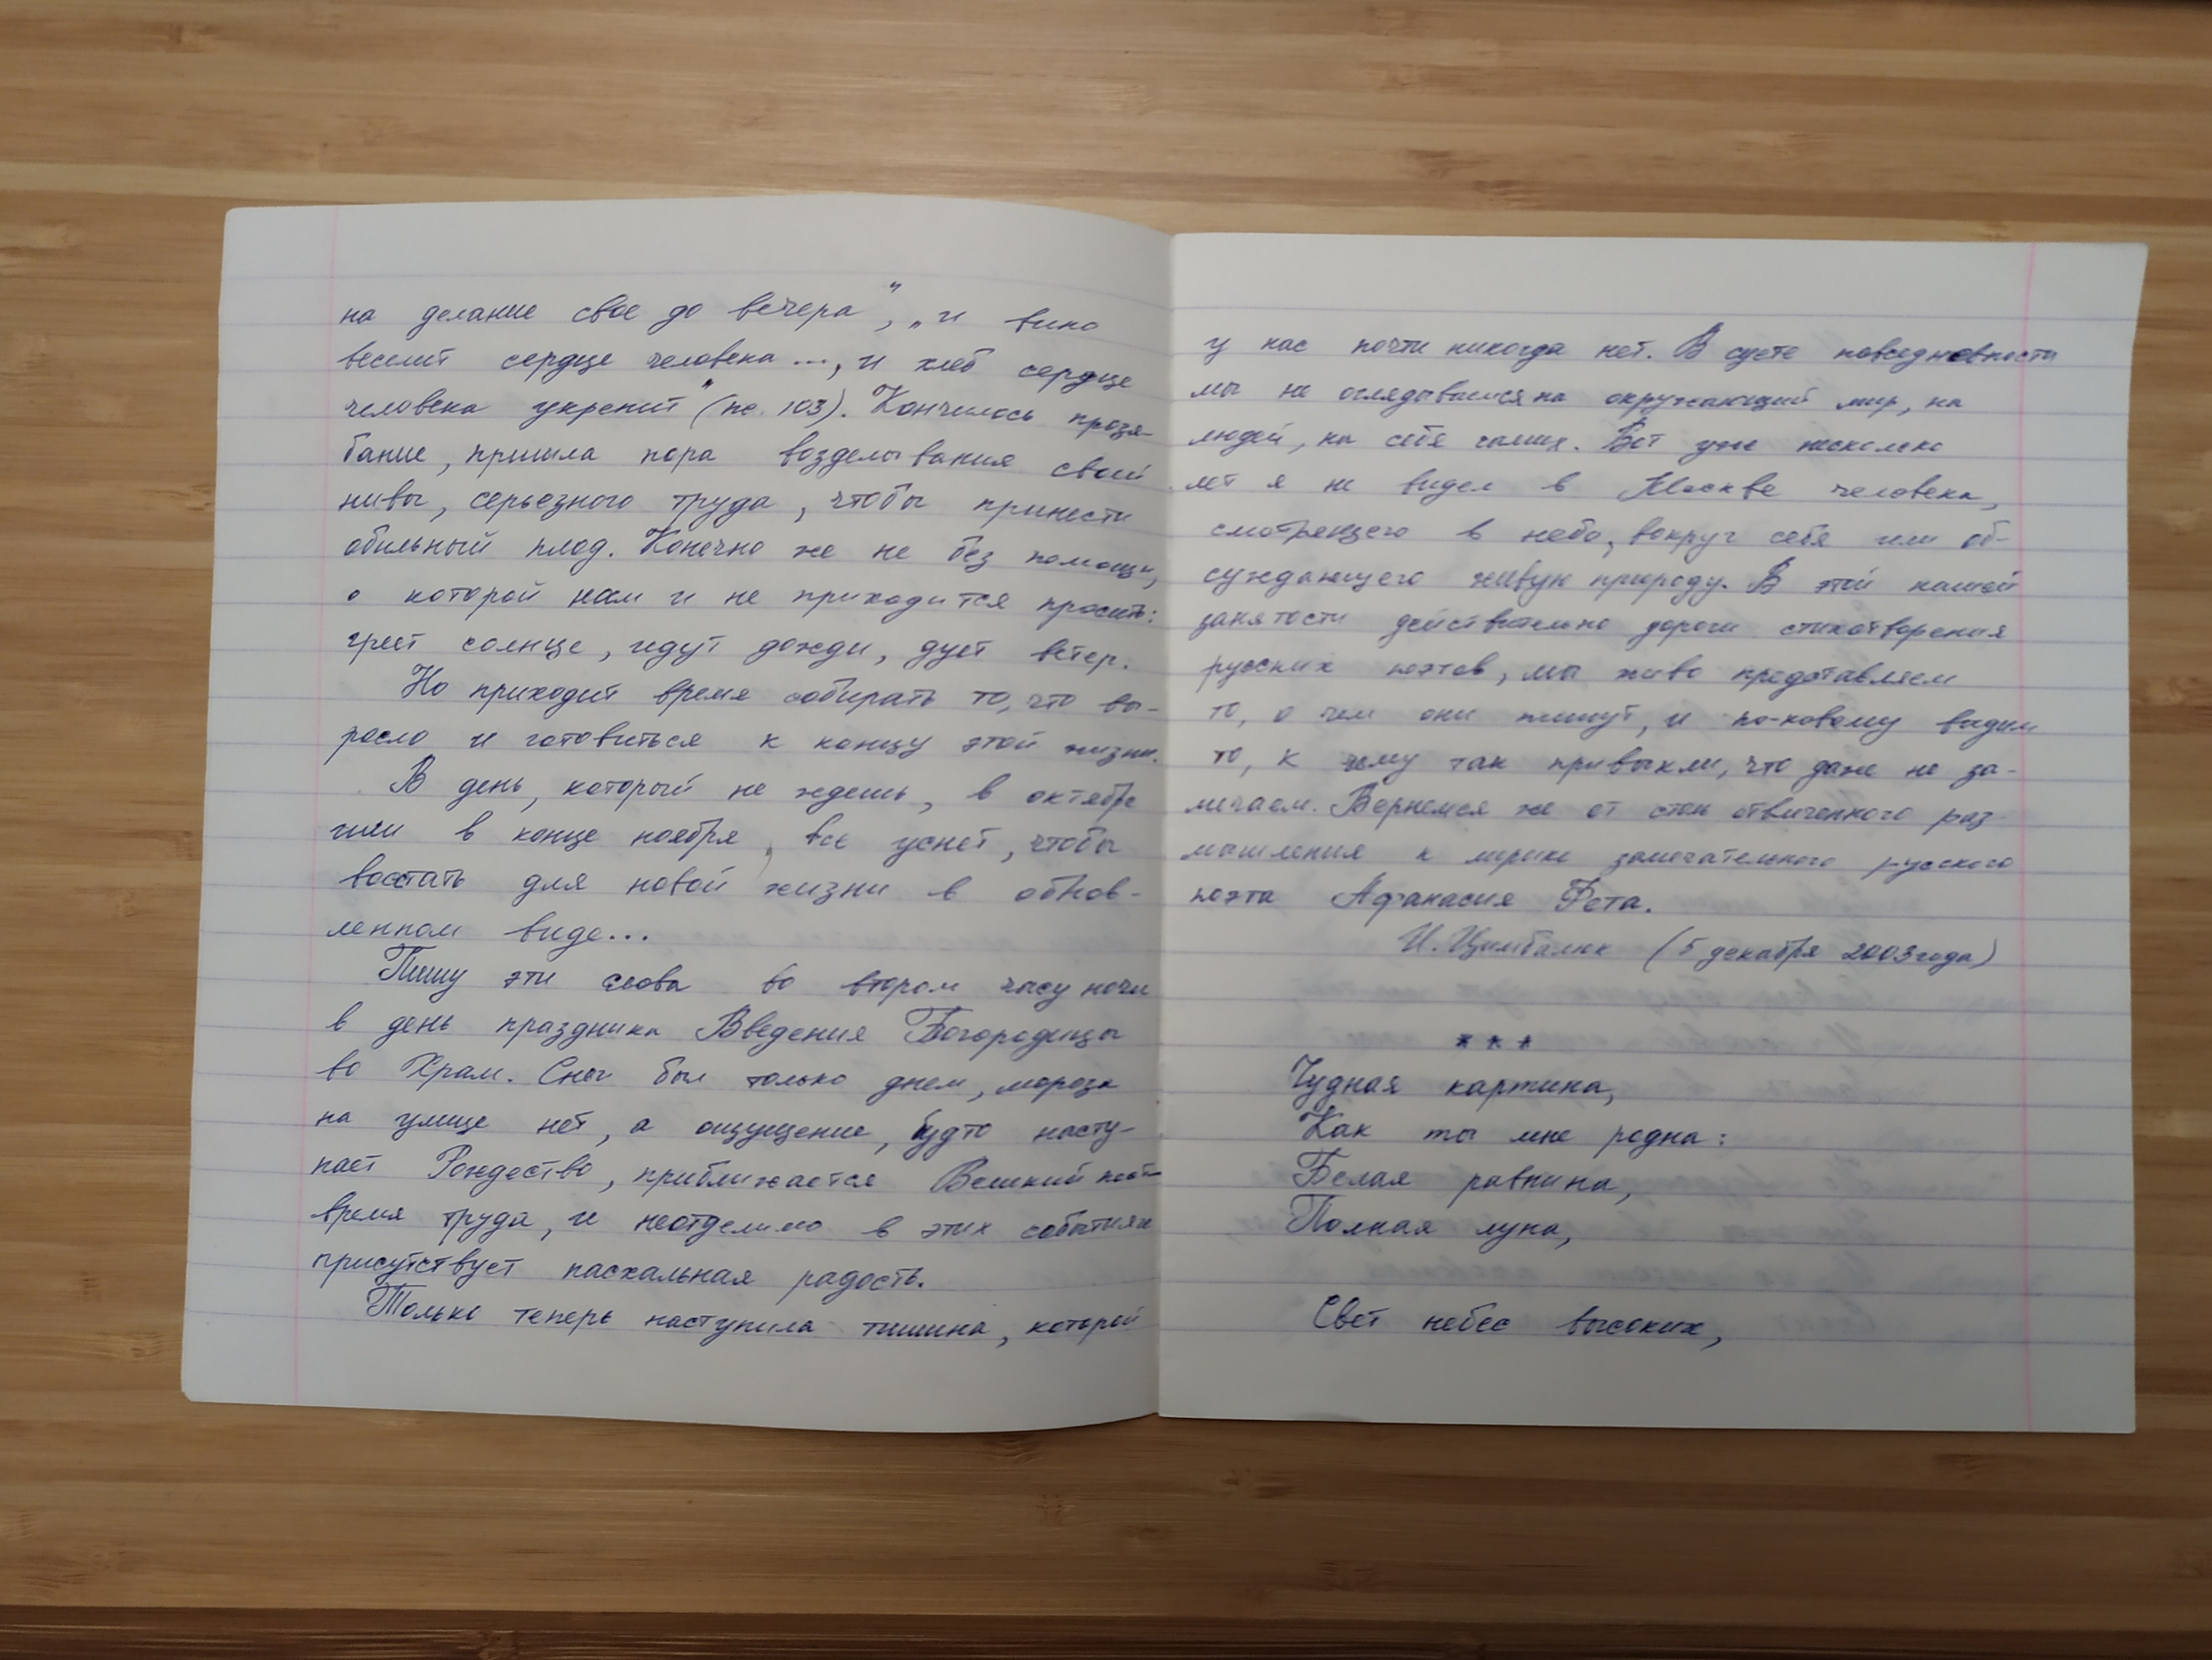 на делание свое до вечера", „и вино
веселит сердце человека..., и хлеб сердце
человека укрепит" (пс. 103). Кончилось прозя-
бание, пришла пора возделывания своей
нивы, серьезного труда, чтобы принести
обильный плод. Конечно же не без помощи,
о которой нам и не приходится просить:
греет солнце, идут дожди, дует ветер.
Но приходит время собирать то, что вы-
росло и готовиться к концу этой жизни.
В день, который не ждешь, в октябре
или в конце ноября, все уснет, чтобы
восстать для новой жизни в обнов-
ленном виде...
Пишу эти слова во втором часу ночи
в день праздника Введения Богородицы
во Храм. Снег был только днем, мороза
на улице нет, а ощущение, будто насту-
пает Рождество, приближается Великий пост –
время труда, и неотделимо в этих событиях
присутствует пасхальная радость.
Только теперь наступила тишина, которой
у нас почти никогда нет. В суете повседневности
мы не оглядываемся на окружающий мир, на
людей, на себя самих. Вот уже несколько
лет я не видел в Москве человека,
смотрящего в небо, вокруг себя или об-
суждающего живую природу. В этой нашей
занятости действительно дороги стихотворения
русских поэтов, мы живо представляем
то, о чем они пишут, и по-новому видим
то, к чему так привыкли, что даже не за-
мечаем. Вернемся же от стен отвлеченного раз-
мышления к лирике замечательного русского
поэта Афанасия Фета.
И. Цимбалюк (5 декабря 2003 года)
* * *
Чудная картина,
Как ты мне родна:
Белая равнина,
Полная луна,
Свет небес высоких,